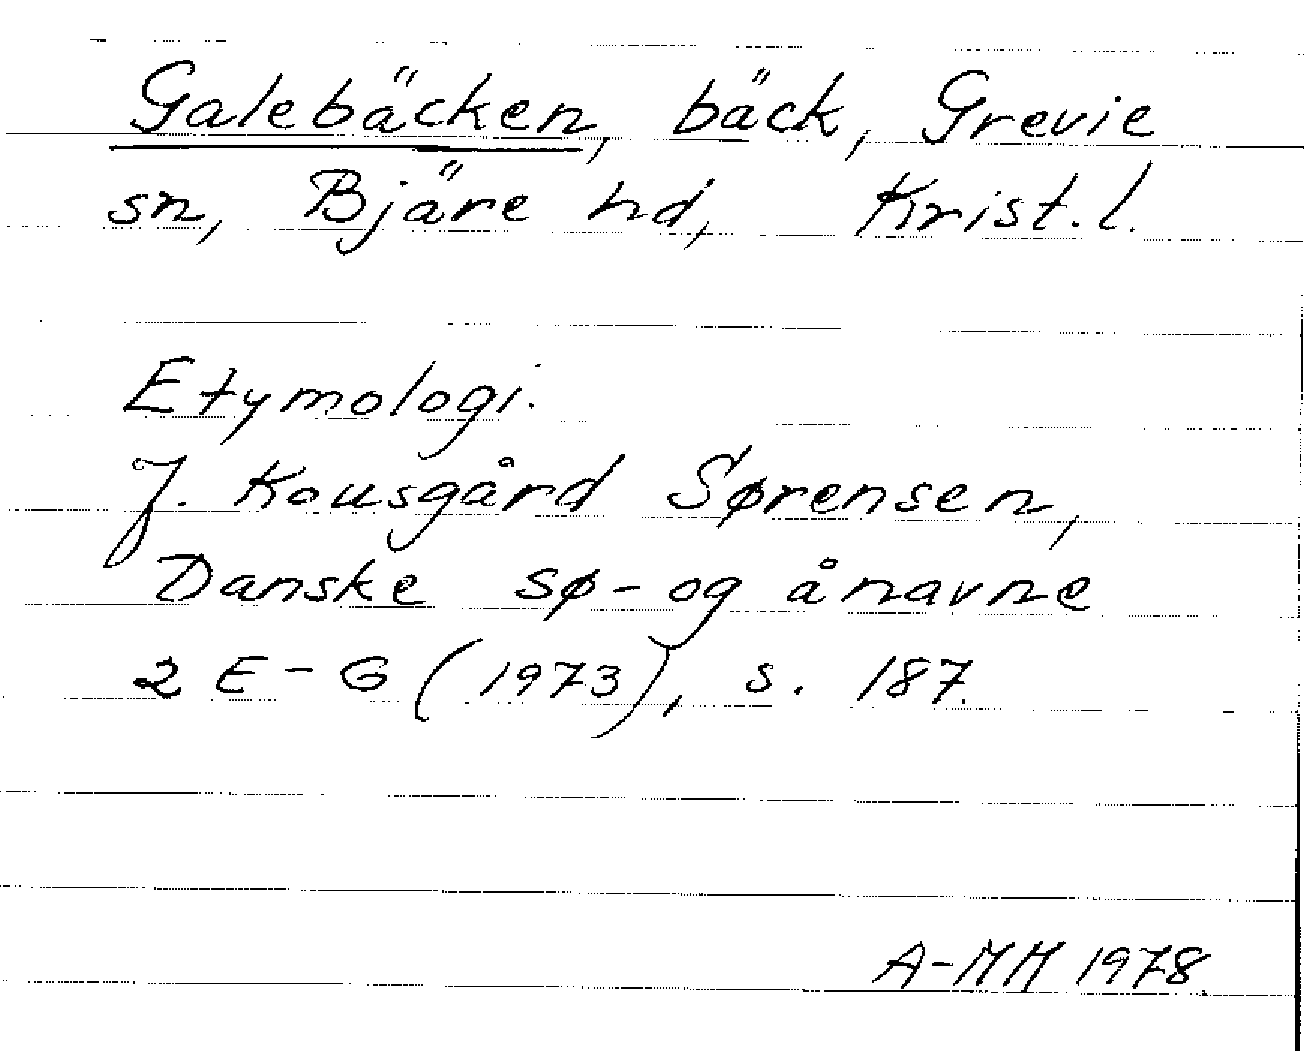 Galebäcken, bäck, Grevie
sn, Bjäre hd, Krist. l.
Etymologi.
J. Kousgård Sørensen,
Danske sø- og ånavne
2 E-G (1973), s. 187.
A-MM 1978.